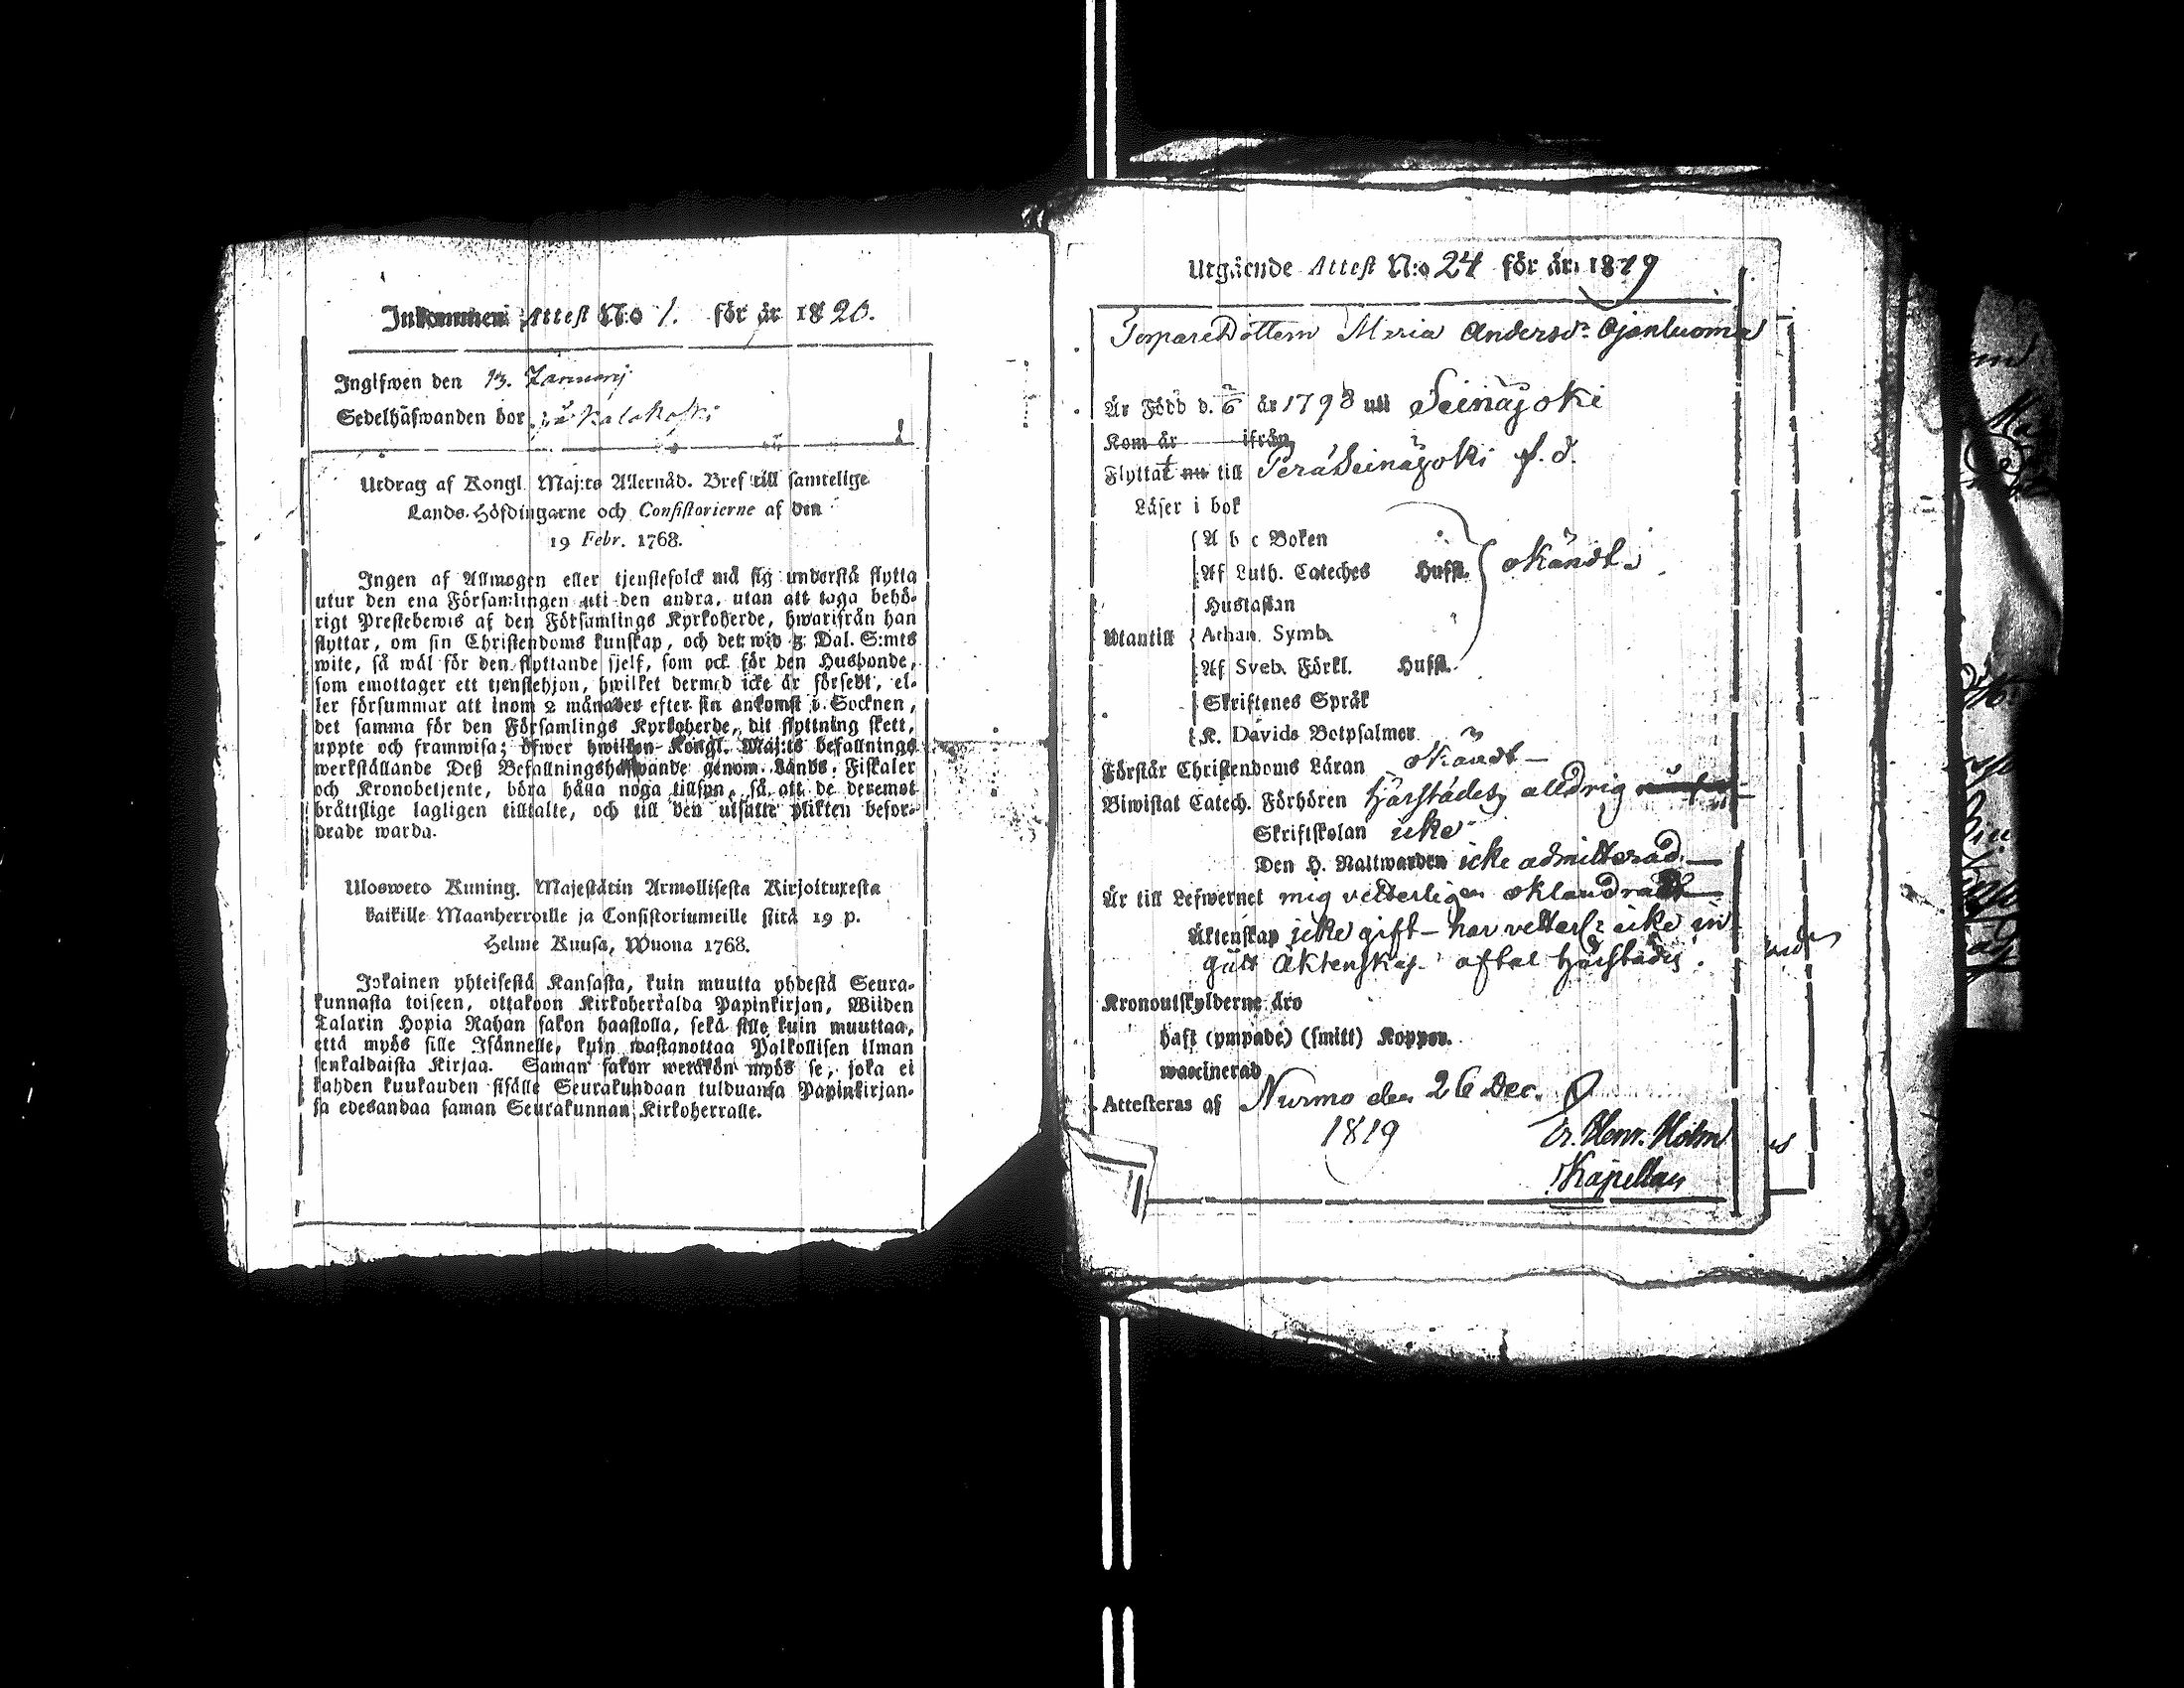 Inkommen Attest N:o 1. för år 1820.
Inglfwen den 13. Januarij
Sedelhafwanden bor på Kalakoski
Utdrag af Kongl. Maj:ts Allernåd. Bref till samtelige
Lands-Höfdingarne och Consistorierne af den
19 Febr. 1768.
Ingen af Allmogen eller tjenstefolck må sig understå flytta
utur den ena Församlingen uti den andra, utan att taga behö-
rigt Prestebewis af den Församlings Kyrkoherde, hwarifrån han
flyttar, om sin Christendoms kunskap, och det wid 3. Dal. S:mts
wite, så wäl för den flyttande sjelf, som ock för den Husbonde,
som emottager ett tjenstehjon, hwilket dermed icke är försedt, el-
ler försummar att inom 2 månader efter sin ankomst i Socknen,
det samma för den Församlings Kyrkoherde, dit flyttning skett,
uppte och framwisa; öfwer hwilken Kongl. Maj:ts befallnings
werkställande Deß Befallningshafwande genom Lands-Fiskaler
och Kronobetjente, böra hålla noga tillsyn, så att de deremot
bråttslige lagligen tilltalte, och till den utsatte plikten befor-
drade warda.
Uloswето Kuning. Majestätin Armollisesta Kirjoituxesta
kaikille Maanherroille ja Consistoriumeille siitä 19 p.
Helme Kuusa, Wuona 1768.
Jokainen yhteisestä Kansasta, kuin muutta yhdestä Seura-
kunnasta toiseen, ottakoon Kirkoherralda Papinkirjan, Wiiden
Talarin Hopia Rahan sakon haastolla, sekä sille kuin muuttaa,
että myös sille Isännelle, kuin wastanottaa Palkollisen ilman
senkaldaista Kirjaa. Saman sakon wetäkön myös se, joka ei
kahden kuukauden sisälle Seurakundaan tulduansa Papinkirjan-
sa edesandaa saman Seurakunnan Kirkoherralle.
Utgående Attest N:o 24 för år 1819
Torpare Dottern Maria Andersdr Ojanluoma
Är Född d. 2/6 år 1798 uti Seinäjoki
Kom år ifrån
Flyttat nu till Peräseinäjoki f. d.
Läser i bok
A b c Boken
Af Luth. Cateches Hufst. okändt.
Hustaflan
Utantill Athan. Symb.
Af Sveb. Förkl. Hufst.
Skriftenes Språk
K. Davids Botpsalmer
Förstår Christendoms Läran okändt
Biwistat Catech. Förhören härstädes aldrig
Skriftskolan icke
Den H. Nattwarden icke admitterad
Är till Lefwernet mig vetterligen oklandrad
Äktenskap icke gift - har vetterl: icke in
gått Äktenskaps aftal härstädes.
Kronoutskylderne äro
haft (ympade) (smitt) Koppor.
waccinerad
Attesteras af Nurmo den 26 Dec.
1819
Er. Henr. Holm
Kapellan